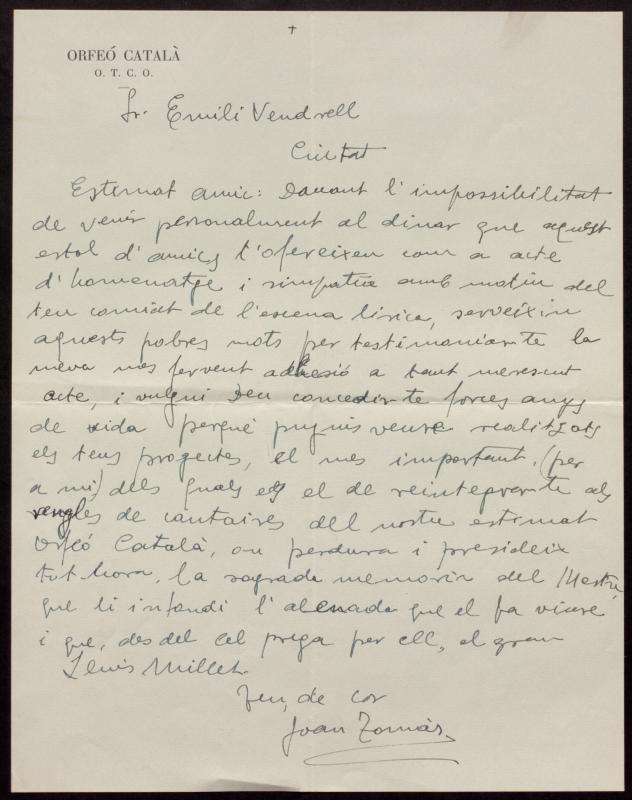 +
ORFEÓ CATALÀ
O. T. C. O.
Sr. Emili Vendrell
Ciutat
Estimat amic: Davant l'impossibilitat
de venir personalment al dinar que aquest
estol d'amics t'ofereixen com a acte
d'homenatge i simpatia amb motiu del
teu comiat de l'escena lírica, serveixin
aquests pobres mots per testimoniar-te la
meva mes fervent adhesió a tant merescut
acte, i vulgui Deu concedir-te forces anys
de vida perquè puguis veure realitzats
els teus projectes, el mes important, (per
a mi) dels quals es el de reintegrar-te als
rengles de cantaires del nostre estimat
Orfeó Català, on perdura i presideix
tot hora, la sagrada memoria del Mestre,
que li infondi l'alenada que el fa viure
i que, des del cel prega per ell, el gran
Lluis Millet.
Teu, de cor
Joan Tomàs